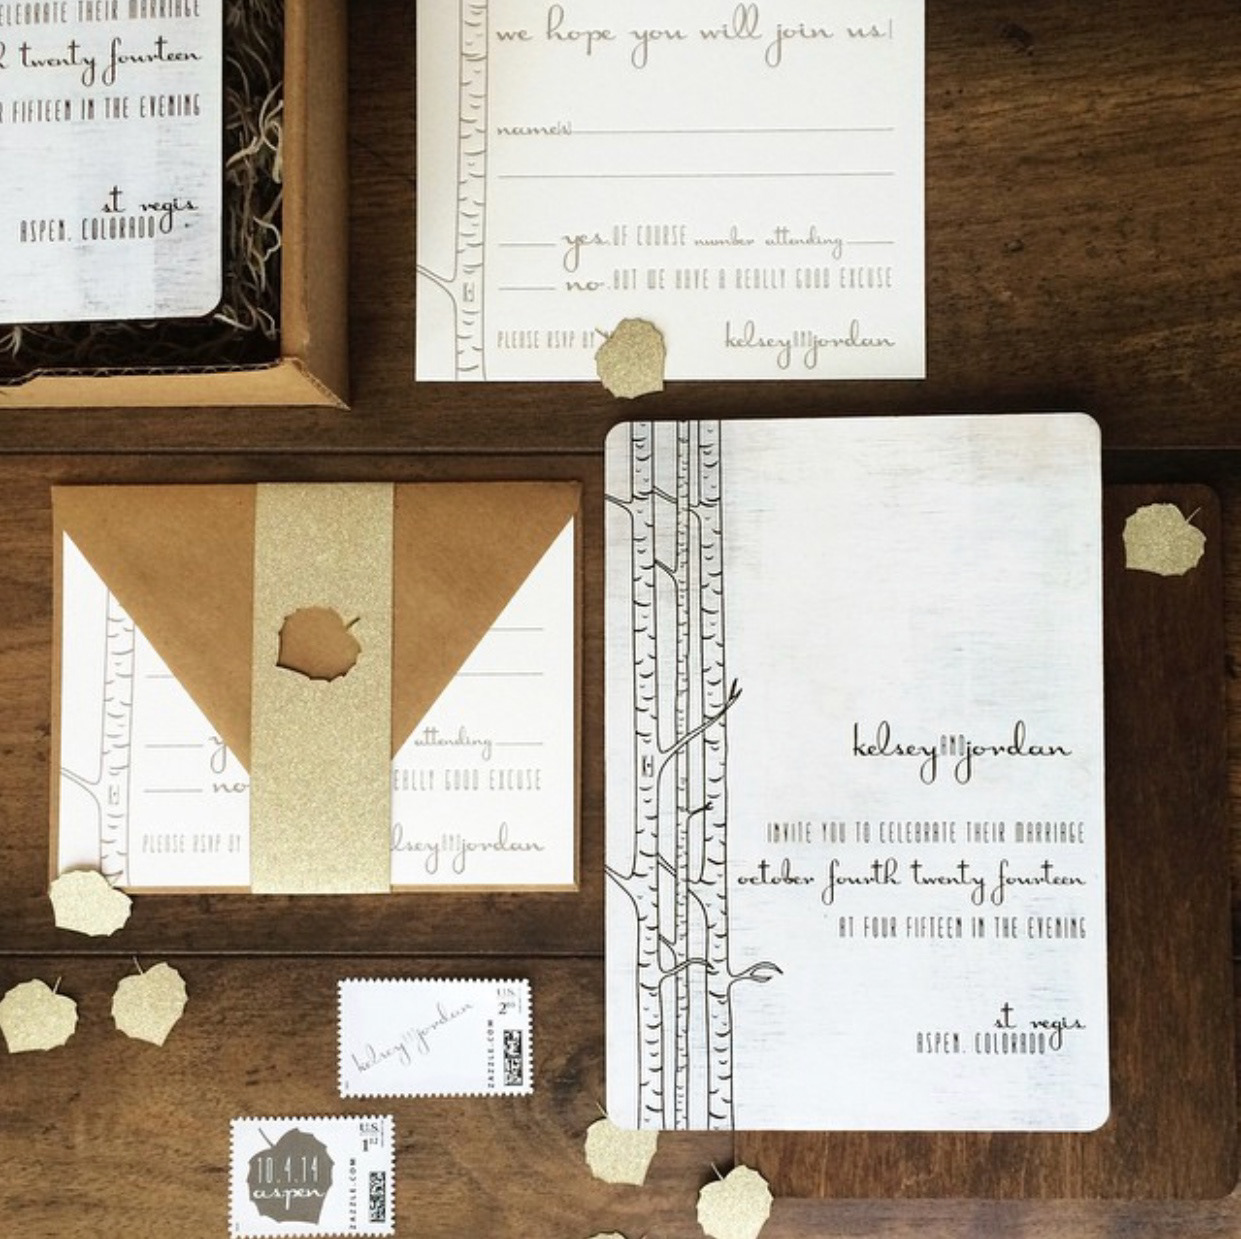 CELEBRATE THEIR MARRIAGE
twenty fourteen
FIFTEEN IN THE EVENING
st regis
ASPEN, COLORADO
we hope you will join us!
name(s)
yes, OF COURSE number attending
no, BUT WE HAVE A REALLY GOOD EXCUSE
PLEASE RSVP BY
kelsey AND jordan
attending
no
GOOD EXCUSE
PLEASE RSVP BY
AND jordan
kelsey AND jordan
INVITE YOU TO CELEBRATE THEIR MARRIAGE
october fourth twenty fourteen
AT FOUR FIFTEEN IN THE EVENING
st regis
ASPEN, COLORADO
kelsey AND jordan
U.S.
2
ZAZZLE.COM
10.4.14
aspen
U.S.
1
ZAZZLE.COM